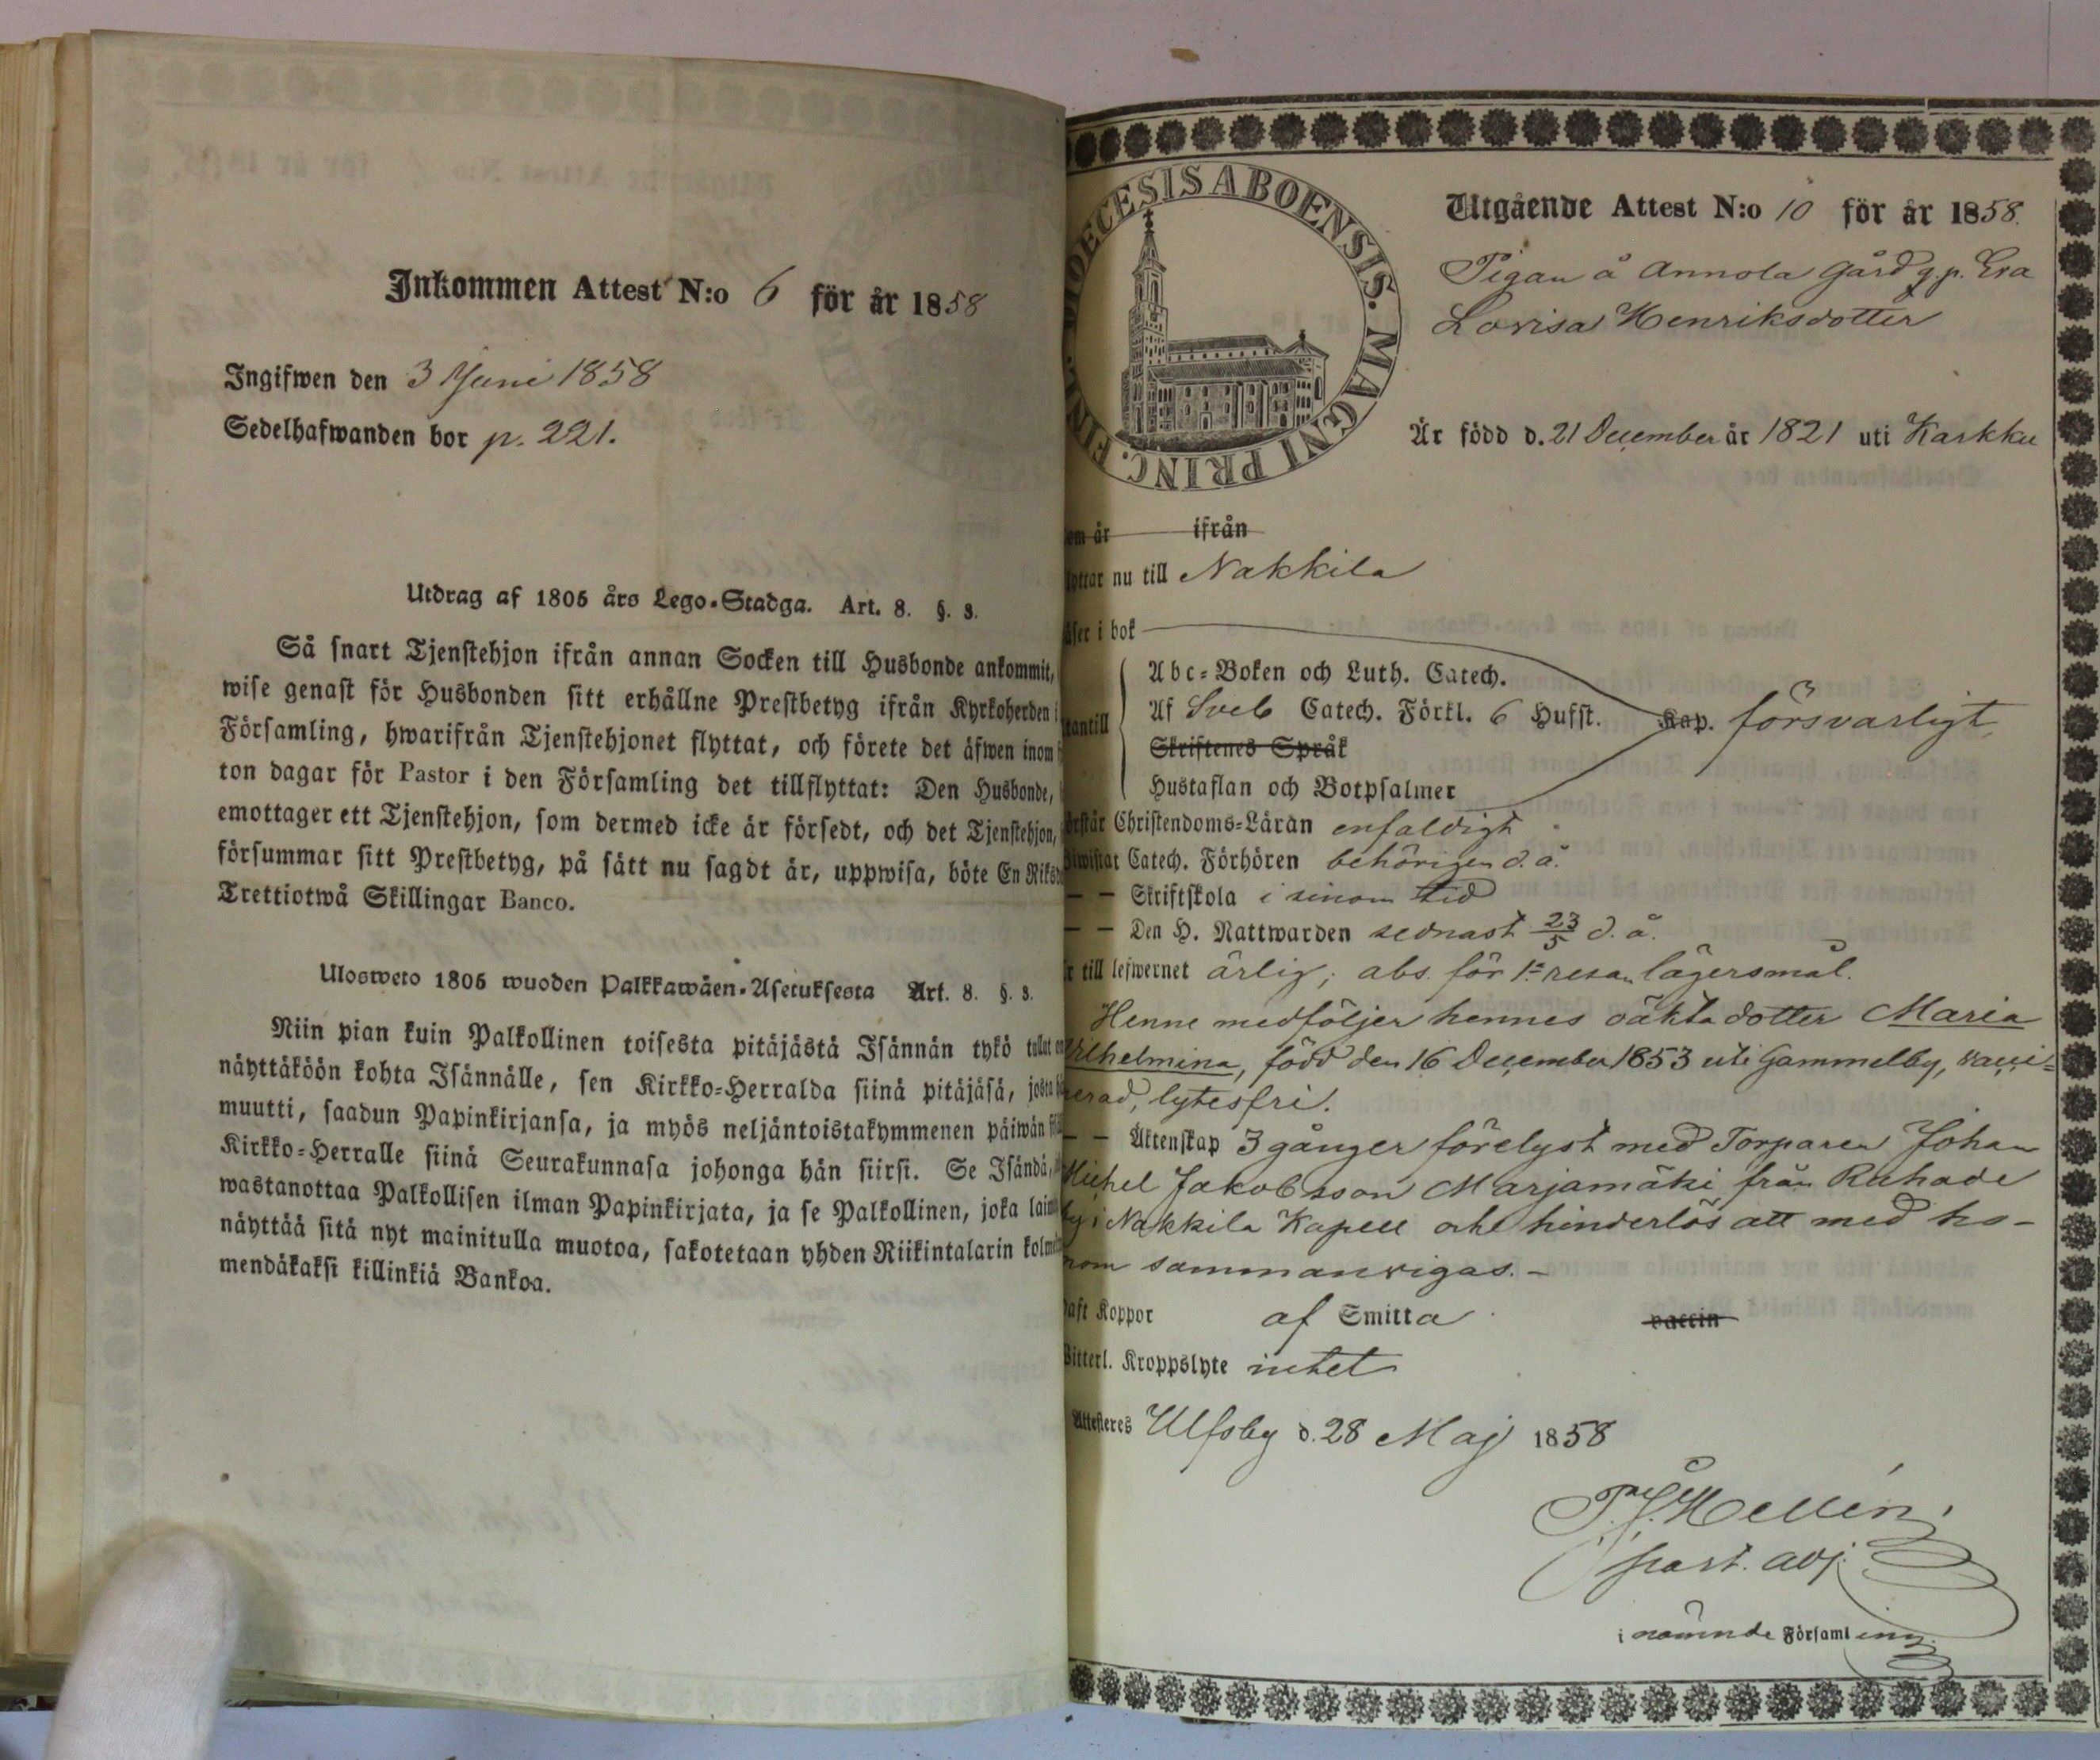 Inkommen Attest N:o 6 för år 1858
Ingifwen den 3 Juni 1858
Sedelhafwanden bor p. 221.
Utdrag af 1805 års Lego-Stadga. Art. 8. §. 8.
Så snart Tjenstehjon ifrån annan Socken till Husbonde ankommit,
wise genast för Husbonden sitt erhållne Prestbetyg ifrån Kyrkoherden i
Församling, hwarifrån Tjenstehjonet flyttat, och förete det äfwen inom
ton dagar för Pastor i den Församling det tillflyttat: Den Husbonde,
emottager ett Tjenstehjon, som dermed icke är försedt, och det Tjenstehjon,
försummar sitt Prestbetyg, på sätt nu sagdt är, uppwisa, böte En Riksd
Trettiotwå Skillingar Banco.
Ulosweto 1805 wuoden Palkkawäen-Asetuksesta Art. 8. §. 8.
Niin pian kuin Palkollinen toisesta pitäjästä Isännän tykö tullut on
näyttäköön kohta Isännälle, sen Kirkko-Herralda siinä pitäjäsä, josta
muutti, saadun Papinkirjansa, ja myös neljäntoistakymmenen päiwän
Kirkko-Herralle siinä Seurakunnasa johonga hän siirsi. Se Isändä,
wastanottaa Palkollisen ilman Papinkirjata, ja se Palkollinen, joka laim
näyttää sitä nyt mainitulla muotoa, sakotetaan yhden Riikintalarin kolm
mendäkaksi killinkiä Bankoa.
DIOECESIS ABOENSIS. MAGNI PRINC. FINL.
Utgående Attest N:o 10 för år 1858.
Pigan å Annola gård g.p. Eva
Lovisa Henriksdotter
Är född d. 21 December år 1821 uti Karkku
om år ifrån
lyttar nu till Nakkila
äser i bok
Abc-Boken och Luth. Catech.
utantill Af Sveb Catech. Förkl. 6 Hufst. Kap. försvarligt
Skriftenes Språk
Hustaflan och Botpsalmer
örstår Christendoms-Läran enfaldigt
Catech. Förhören behörigen d.å.
— — Skriftskola i sinom tid
— — Den H. Nattwarden sednast 23/5 d.å.
är till lefwernet ärlig; abs. för 1:a resan lägersmål.
Henne medföljer hennes oäkta dotter Maria
Vilhelmina, född den 16 December 1853 uti Gammelby, vacci=
nerad, lytesfri.
— — Äktenskap 3 gånger förelyst med Torparen Johan
Michel Jakobsson Marjamäki från Ruhade
by i Nakkila Kapell och hinderlös att med ho-
nom sammanvigas. —
haft Koppor af Smitta vaccin
Witterl. Kroppslyte intet
Attesteres Ulfsby d. 28 Maj 1858
Hellén
past. adj.
i nämnde Församling